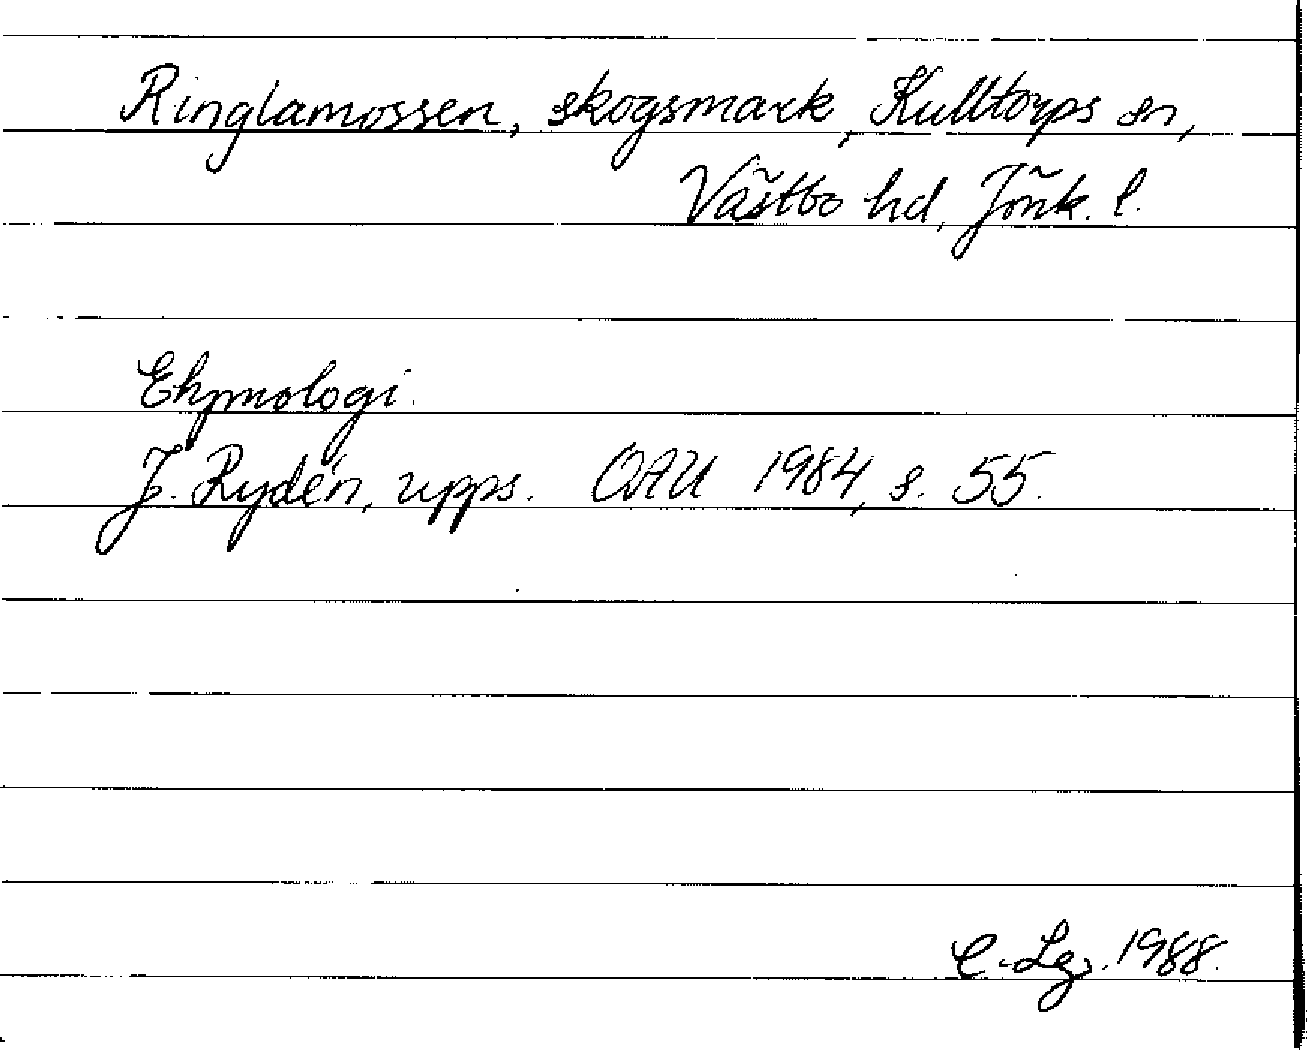 Ringlamossen, skogsmark, Kulltorps sn,
Västbo hd, Jönk. l.
Etymologi.
J. Rydén, upps. OAU 1984, s. 55.
C. Lg. 1988.